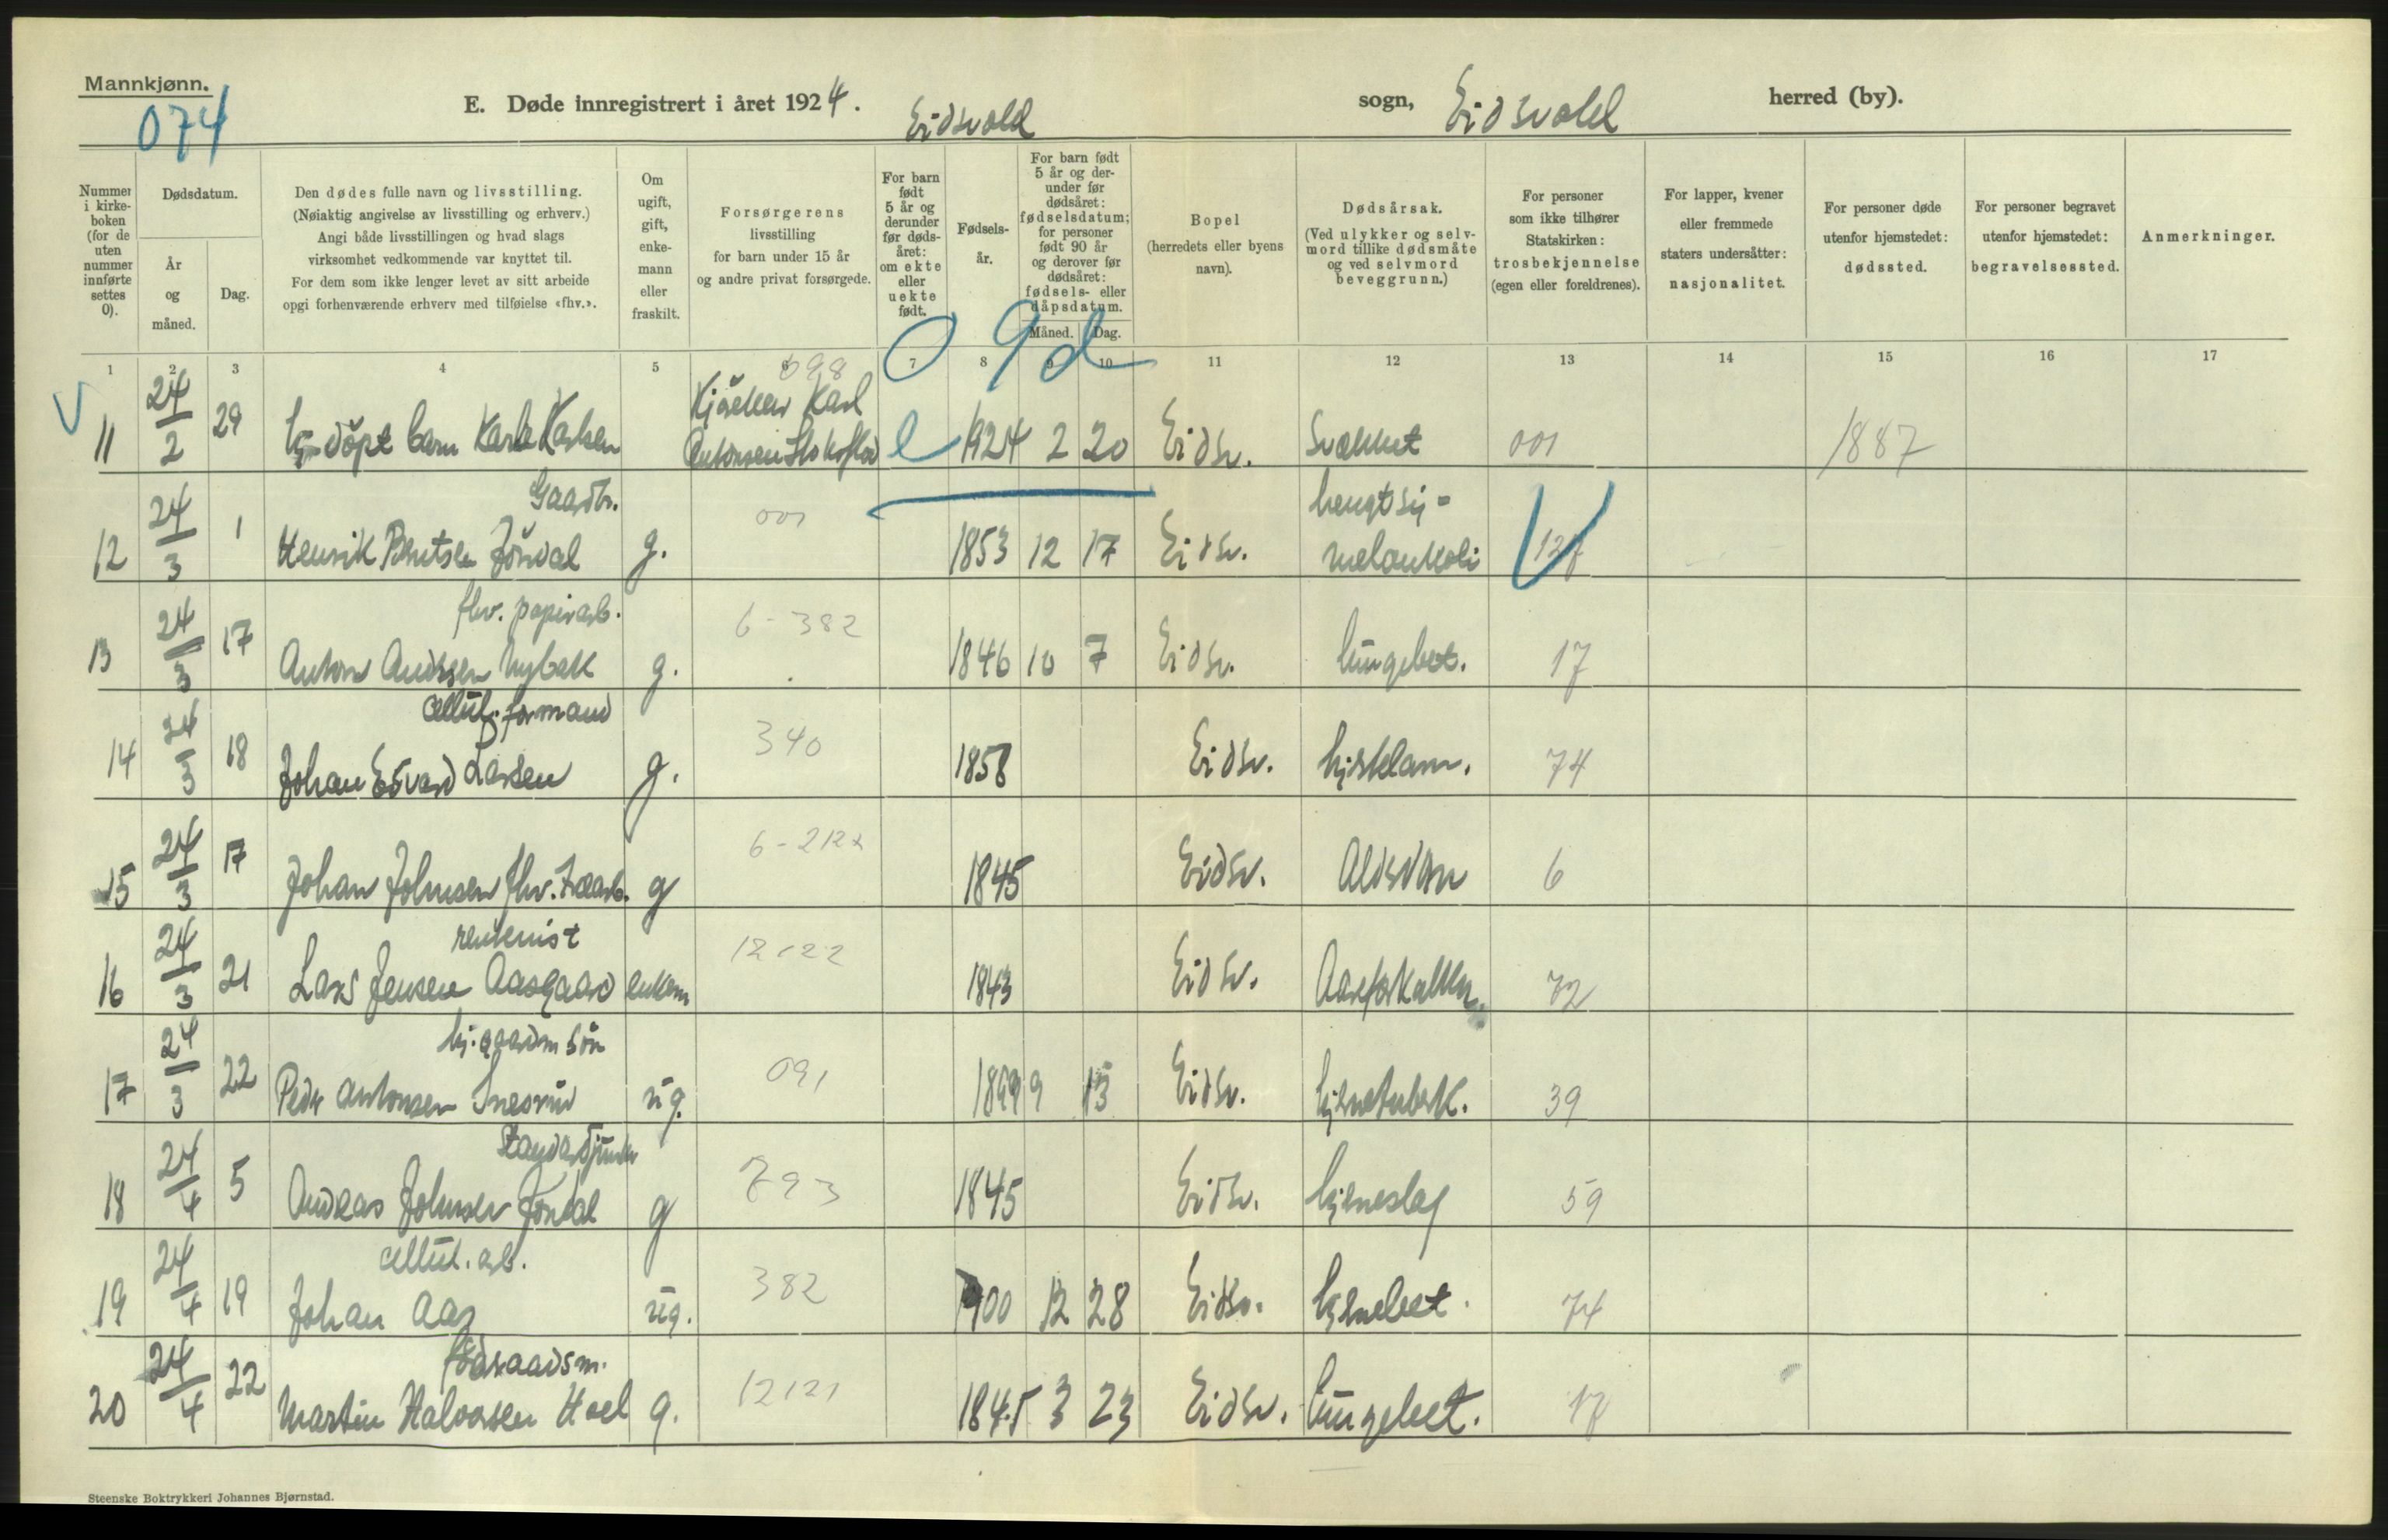 Mannkjønn.
074
E. Døde innregistrert i året 1924. Eidsvold sogn, Eidsvold herred (by).
Nummer i kirkeboken (for de uten nummer innførte settes 0).
Dødsdatum.
År og måned.
Dag.
Den dødes fulle navn og livsstilling.
(Nøiaktig angivelse av livsstilling og erhverv.)
Angi både livsstillingen og hvad slags
virksomhet vedkommende var knyttet til.
For dem som ikke lenger levet av sitt arbeide
opgi forhenværende erhverv med tilføielse «fhv.».
Om ugift, gift, enkemann eller fraskilt.
Forsørgerens
livsstilling
for barn under 15 år
og andre privat forsørgede.
For barn født 5 år og derunder før dødsåret: om ekte eller uekte født.
Fødselsår.
For barn født 5 år og derunder før dødsåret: fødselsdatum; for personer født 90 år og derover før dødsåret: fødsels- eller dåpsdatum.
Måned. Dag.
Bopel
(herredets eller byens
navn).
Dødsårsak.
(Ved ulykker og selvmord tillike dødsmåte og ved selvmord beveggrunn.)
For personer
som ikke tilhører
Statskirken:
trosbekjennelse
(egen eller foreldrenes).
For lapper, kvener
eller fremmede
staters undersåtter:
nasjonalitet.
For personer døde
utenfor hjemstedet:
dødssted.
For personer begravet
utenfor hjemstedet:
begravelsessted.
Anmerkninger.
1 2 3 4 5 6 7 8 9 10 11 12 13 14 15 16 17
098
09d
11 24/2 29 døpt barn Karl Karlsen Karl Antonsen e 1924 2 20 Eidsv. Svækket 001 1887
Gaardbr.
12 24/3 1 Henrik Berntsen Jøndal g. 001 1853 12 17 Eidsv. hengt sig - melankoli 127
fhv. papirarb.
13 24/3 17 Anton Andersen Nybakk g. 6-382 1846 10 7 Eidsv. lungebet. 17
cellul. formand
14 24/3 18 Johan Edvard Larsen g. 340 1858 Eidsv. hjertelam. 74
15 24/3 17 Johan Johnsen fhv. g 6-212x 1845 Eidsv. Aldersdom 6
rentenist
16 24/3 21 Lars Jensen Aasgaard enkem 12122 1843 Eidsv. Aareforkalkn. 72
hj. gaardm søn
17 24/3 22 Peder Antonsen ug. 091 1899 9 15 Eidsv. hjernetuberk. 39
Standardjunker
18 24/4 5 Andreas Johnsen Jøndal g 793 1845 Eidsv. hjerneslag 59
cellul. arb.
19 24/4 19 Johan Aas ug. 382 1900 12 28 Eidsv. hjernebet. 74
føderaadsm.
20 24/4 22 Martin Halvorsen Hoel g. 12121 1845 3 23 Eidsv. lungebet. 17
Steenske Boktrykkeri Johannes Bjørnstad.